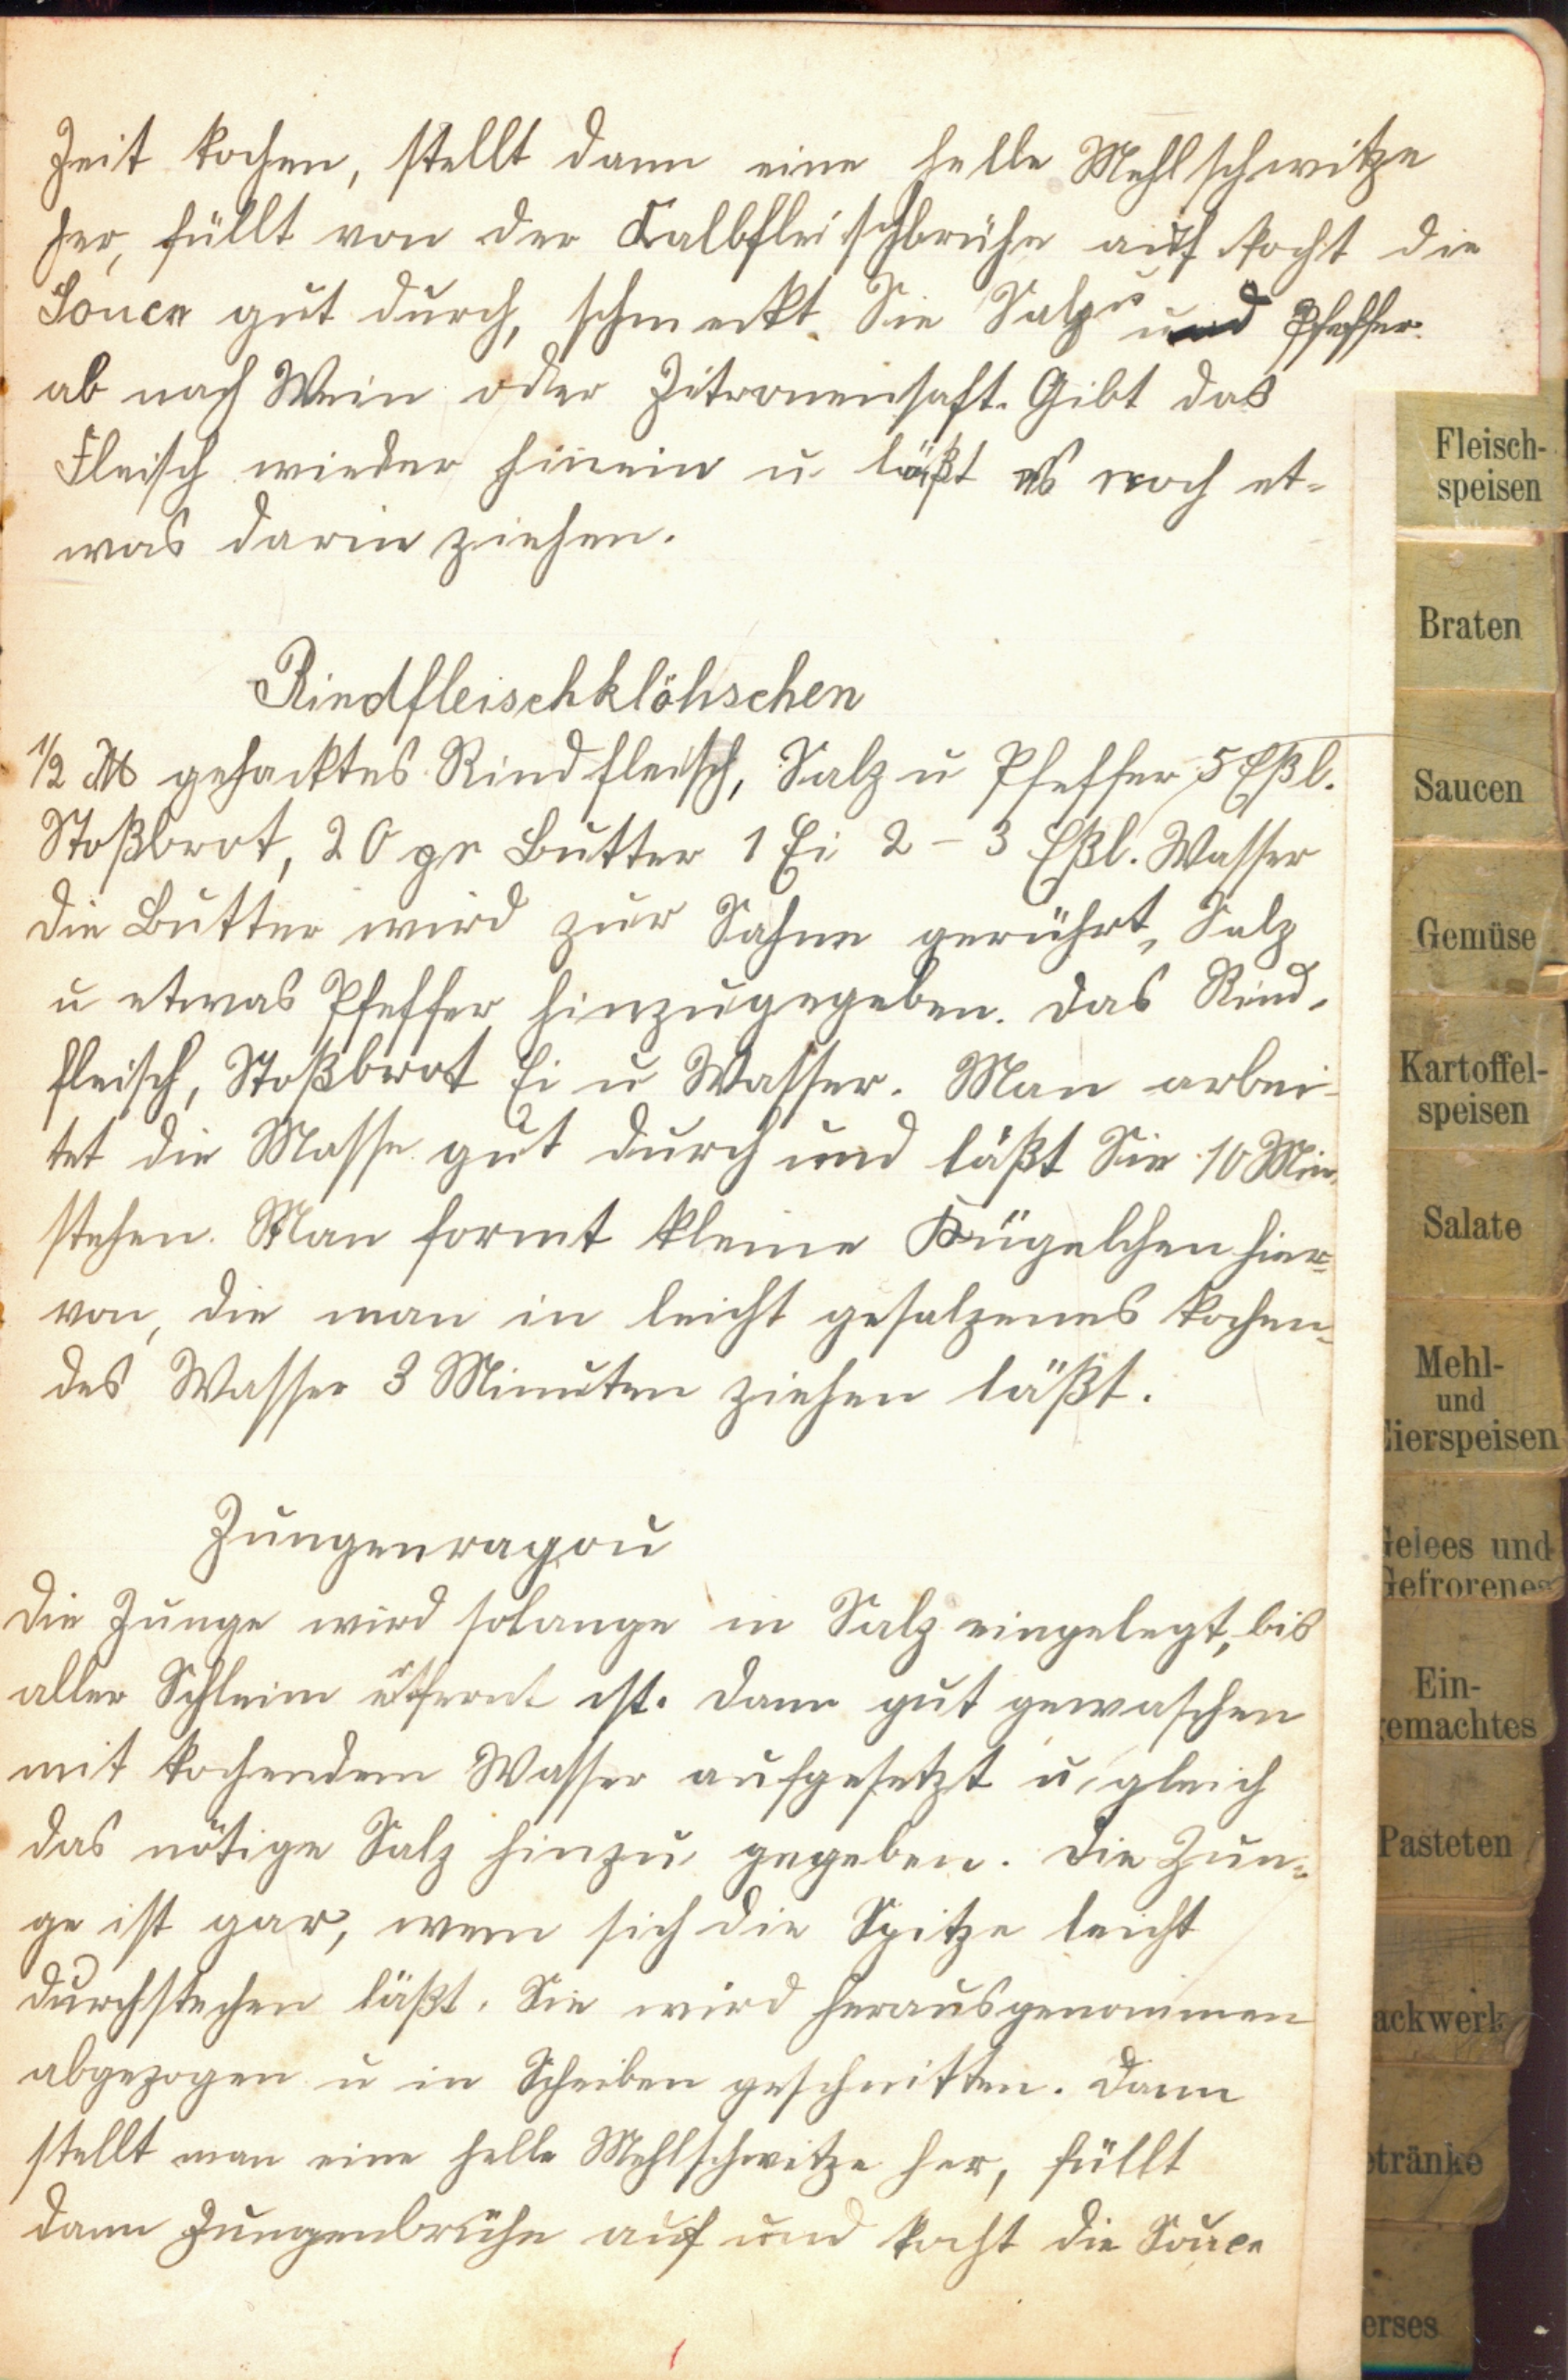 Zeit kochen, stellt dann eine helle Mehlschwitze
her, füllt von der Kalbfleischbrühe auf kocht die
Souce gut durch, schmeckt Sie Salz und Pfeffer
ab nach Wein oder Zitronensaft. Gibt das
Fleisch wieder hinein u läßt es noch et-
was darin ziehen.
Rindfleischklöhschen
1/2 ℔ gehacktes Rindfleisch, Salz u Pfeffer 5 Eßl.
Stoßbrot, 20 gr Butter 1 Ei 2 - 3 Eßl. Wasser
die Butter wird zur Sahne gerührt, Salz
u etwas Pfeffer hinzugegeben. das Rind-
fleisch, Stoßbrot Ei u Wasser. Man arbei-
tet die Masse gut durch und läßt Sie 10 Min.
stehen. Man formt kleine Kügelchen hier-
von, die man in leicht gesalzenes kochen-
des Wasser 3 Minuten ziehen läßt.
Zungenragou
die Zunge wird solange in Salz eingelegt, bis
aller Schleim ist. dann gut gewaschen
mit kochendem Wasser aufgesetzt u gleich
das nötige Salz hinzu gegeben. die Zun-
ge ist gar, wenn sich die Spitze leicht
durchstechen läßt. Sie wird herausgenommen
abgezogen u in Scheiben geschnitten. dann
stellt man eine helle Mehlschwitze her, füllt
dann Zungenbrühe auf und kocht die Souce
Fleisch-
speisen
Braten
Saucen
Gemüse
Kartoffel-
speisen
Salate
Mehl-
und
Eierspeisen
Gelees und
Gefrorenes
Ein-
gemachtes
Pasteten
ackwerk
etränke
erses